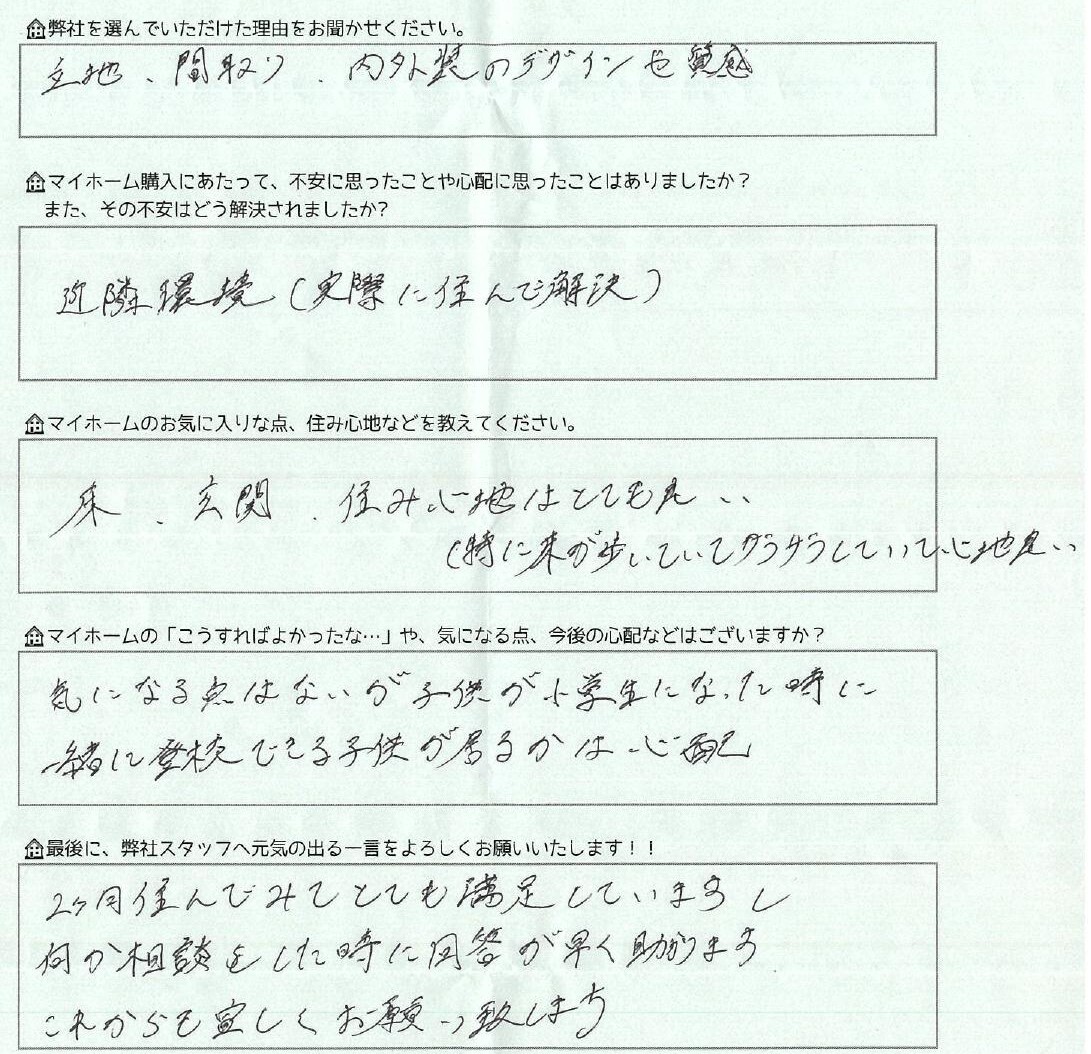 弊社を選んでいただけた理由をお聞かせください。
立地、間取り、内外装のデザインや質感
マイホーム購入にあたって、不安に思ったことや心配に思ったことはありましたか？
また、その不安はどう解決されましたか?
近隣環境(実際に住んで解決)
マイホームのお気に入りな点、住み心地などを教えてください。
床、玄関、住み心地はとても良い
(特に床が歩いていてサラサラしていて心地良い
マイホームの「こうすればよかったな…」や、気になる点、今後の心配などはございますか？
気になる点はないが子供が小学生になった時に
一緒に登校できる子供が居るかは心配
最後に、弊社スタッフへ元気の出る一言をよろしくお願いいたします！！
2ヶ月住んでみてとても満足していますし
何か相談をした時に回答が早く助かります
これからも宜しくお願い致します